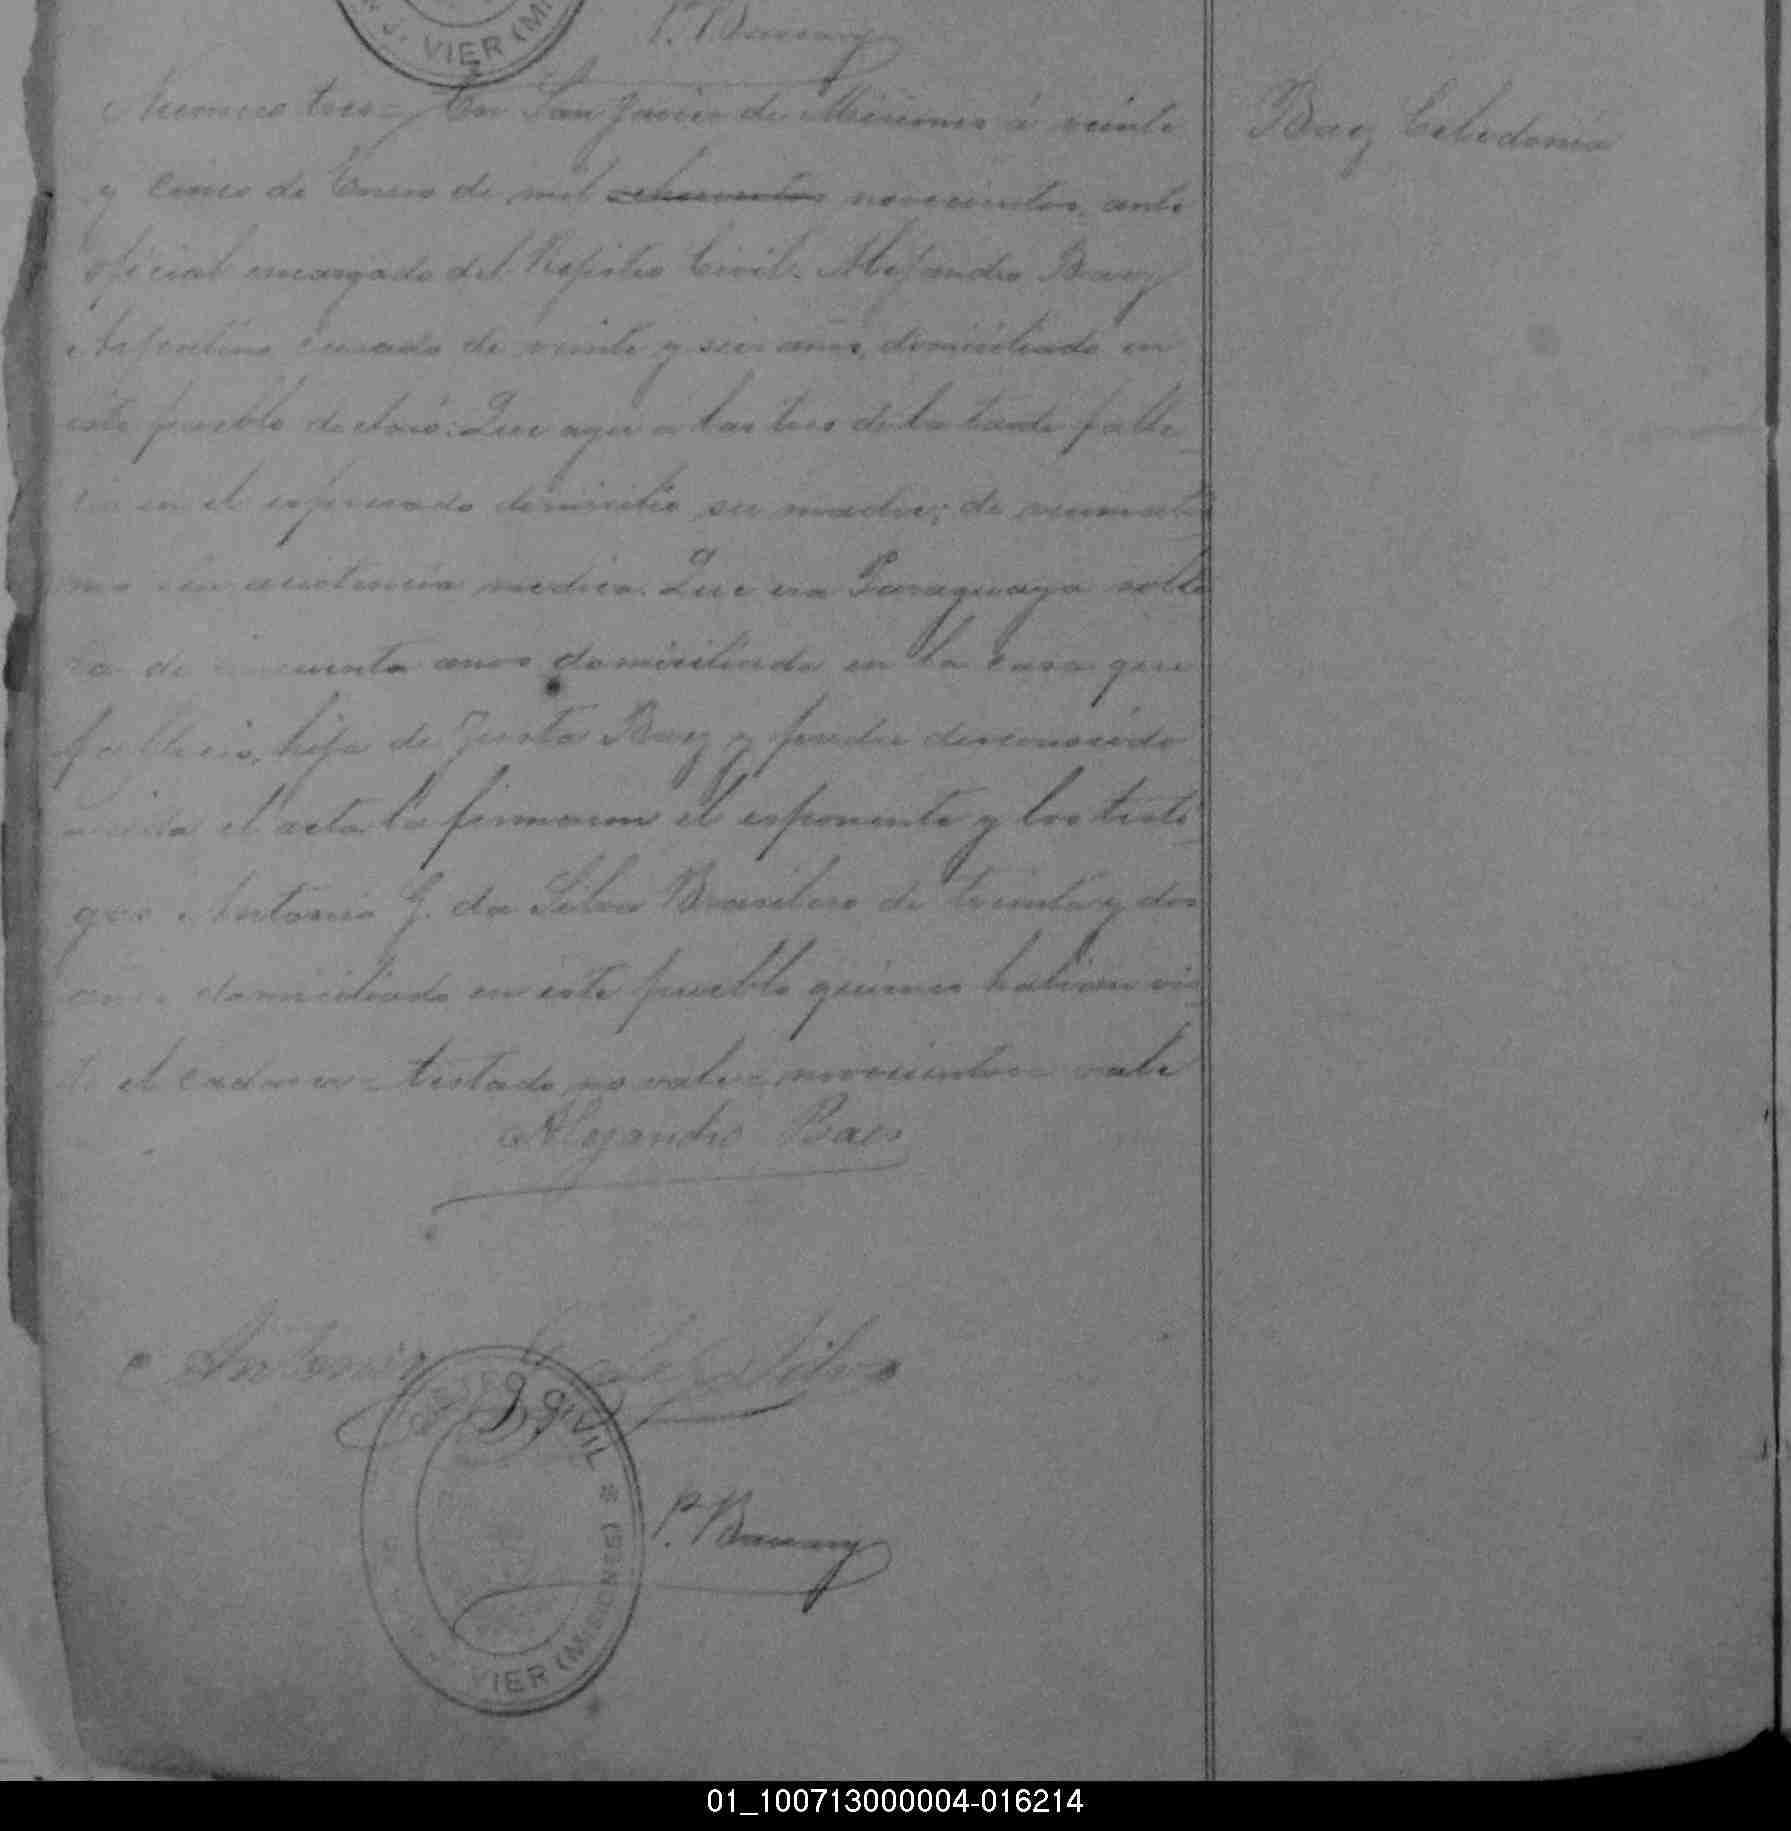 J. VIER (MI
P. Bauray
Numero tres = En San Javier de Misiones á veinte
y cinco de Enero de mil ochocientos novecientos, ante
oficial encargado del Rejistro Civil. Alejandro Baez
Arjentino casado de veinte y seis años, domiciliado en
este pueblo declaró: Que ayer a las tres de la tarde falle
cio en el espresado domicilio su madre; de reumatis
mo sin asistencia medica. Que era Paraguaya solte
ra de cincuenta anos domiciliada en la casa que
fallecio, hija de Justa Baez y padre desconocido
el acta la firmaron el esponente y los testi
gos Antonio G. da Silva Brasilero de treinta y dos
anos domiciliado en este pueblo quienes habian vis
to el cadaver = testado no vale = novecientos = vale
Baez Celedonia
Alejandro Baes
Antonio da Silva
CIVIL
VIER (MISIONES)
P. Bauray
01_100713000004-016214